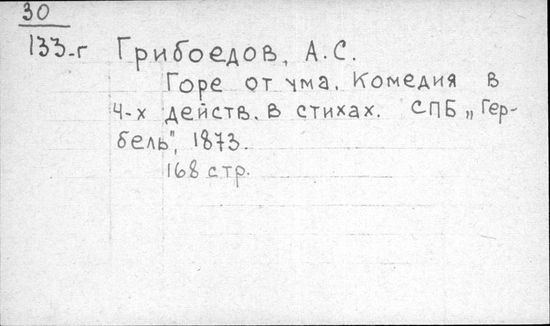 30
133-г Грибоедов, А.С.
Горе от ума. Комедия в
4-х действ. в стихах. СПБ „Гер-
бель", 1873.
168 стр.